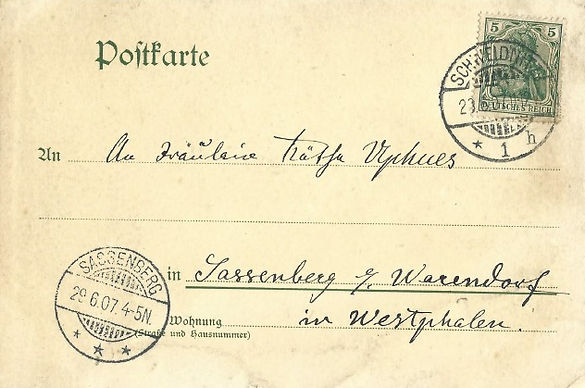 Postkarte
5 5
DEUTSCHES REICH
1 h
An An Fräulein Käthe Uphues
SASSENBERG
29.6.07.4-5N.
in Sassenberg b/ Warendorf
Wohnung in Westphalen.
(Straße und Hausnummer)